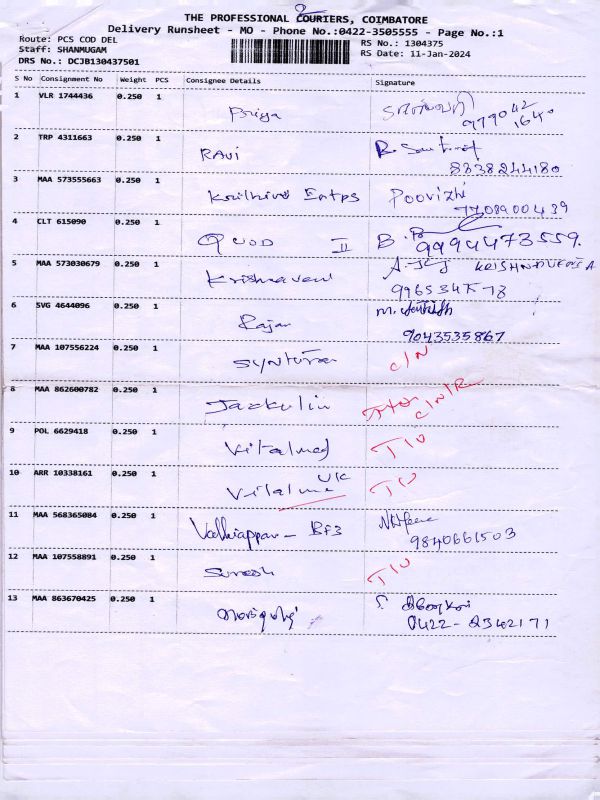 2
THE PROFESSIONAL COURIERS, COIMBATORE
Delivery Runsheet - MO - Phone No.:0422-3505555 - Page No.:1
Route: PCS COD DEL
RS No.: 1304375
Staff: SHANMUGAM
RS Date: 11-Jan-2024
DRS No.: DCJB130437501
S No Consignment No Weight PCS Consignee Details Signature
1 VLR 1744436 0.250 1 Priya 979042
1640
2 TRP 4311663 0.250 1 RAVI
8838244180
3 MAA 573555663 0.250 1 Entps Poovizhi
7708900439
4 CLT 615090 0.250 1 QUOD II B.
9994473559.
5 MAA 573030679 0.250 1 Krishnaveni
6 SVG 4644096 0.250 1 Rajan
9043535867
7 MAA 107556224 0.250 1 C/N
8 MAA 862600782 0.250 1 Jackulin C/N/R
9 POL 6629418 0.250 1 Vitalmed T/U
10 ARR 10338161 0.250 1 UK T/U
11 MAA 568365084 0.250 1 Valliappan - BF3
9840661503
12 MAA 107558891 0.250 1 Suresh T/U
13 MAA 863670425 0.250 1
0422-2342171